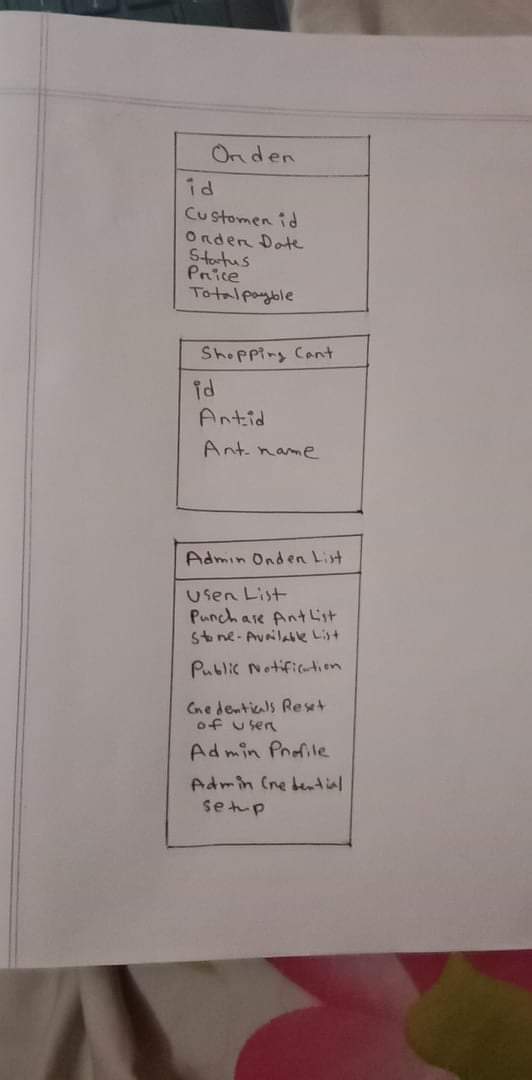 Order
id
Customer id
Order Date
Status
Price
Total payable
Shopping Cart
id
Art-id
Art-name
Admin Order List
User List
Purchase Art List
Store-Available List
Public Notification
Credentials Reset
of user
Admin Profile
Admin Credential
setup